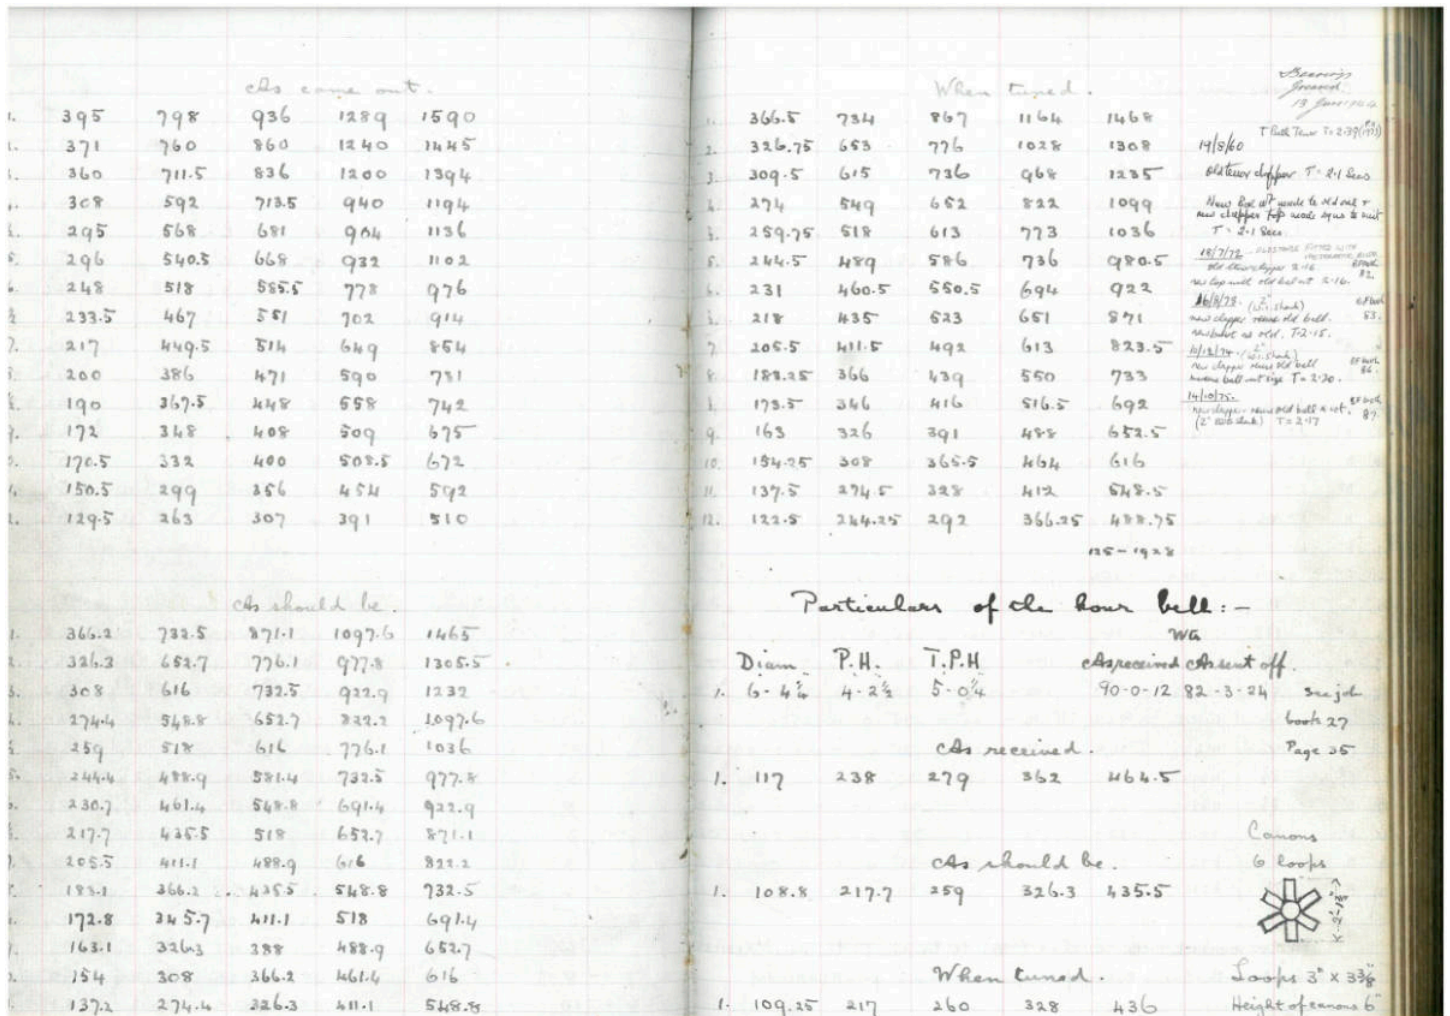 As come out.
1. 395 798 936 1289 1590
371 760 860 1240 1445
360 711.5 836 1200 1394
308 592 713.5 940 1194
295 568 681 904 1136
296 540.5 668 932 1102
248 518 585.5 778 976
233.5 467 551 702 914
217 449.5 514 649 854
200 386 471 590 781
190 367.5 448 558 742
172 348 408 509 675
170.5 332 400 508.5 672
150.5 299 356 454 592
129.5 263 307 391 510
As should be.
1. 366.2 732.5 871.1 1097.6 1465
326.3 652.7 776.1 977.8 1305.5
308 616 732.5 922.9 1232
274.4 548.8 652.7 822.2 1097.6
259 518 616 776.1 1036
244.4 488.9 581.4 732.5 977.8
230.7 461.4 548.8 691.4 922.9
217.7 435.5 518 652.7 871.1
205.5 411.1 488.9 616 822.2
183.1 366.2 435.5 548.8 732.5
172.8 345.7 411.1 518 691.4
163.1 326.3 388 488.9 652.7
154 308 366.2 461.4 616
137.2 274.4 326.3 411.1 548.8
When tuned.
1. 366.5 734 867 1164 1468
2. 326.75 653 776 1028 1308
3. 309.5 615 736 968 1235
274 549 652 822 1099
259.75 518 613 773 1036
244.5 489 586 736 980.5
6. 231 460.5 550.5 694 922
218 435 523 651 871
7. 205.5 411.5 492 613 823.5
8. 183.25 366 439 550 733
173.5 346 416 516.5 692
9. 163 326 391 488 652.5
10. 154.25 308 365.5 464 616
11. 137.5 274.5 328 412 548.5
12. 122.5 244.25 292 366.25 488.75
125-1928
Greased
13 June 1944
19/8/60
old tenor clapper T = 2.1 Secs
T = 2.1 Secs
18/7/72
old tenor clapper 2.16
16/8/78. 2"
new clapper reuse old bell.
as old. T=2.15.
10/12/74. 2"
new clapper reuse old bell
T = 2.20.
14/10/75.
T = 2.17
Particulars of the hour bell:-
Wg
Diam P.H. T.P.H As received As sent off.
1. 6-4¼ 4-2½ 5-0¼ 90-0-12 82-3-24 See job
book 27
Page 35
As received.
1. 117 238 279 362 464.5
Canons
6 loops
As should be.
1. 108.8 217.7 259 326.3 435.5
When tuned.
Loops 3" x 3⅜"
1. 109.25 217 260 328 436
Height of canons 6"